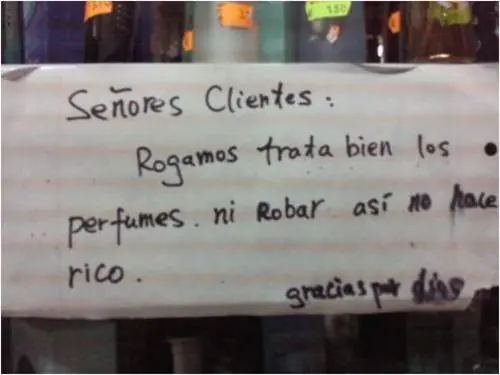 Señores Clientes :
Rogamos trata bien los
perfumes. ni Robar así no hace
rico.
gracias por dios